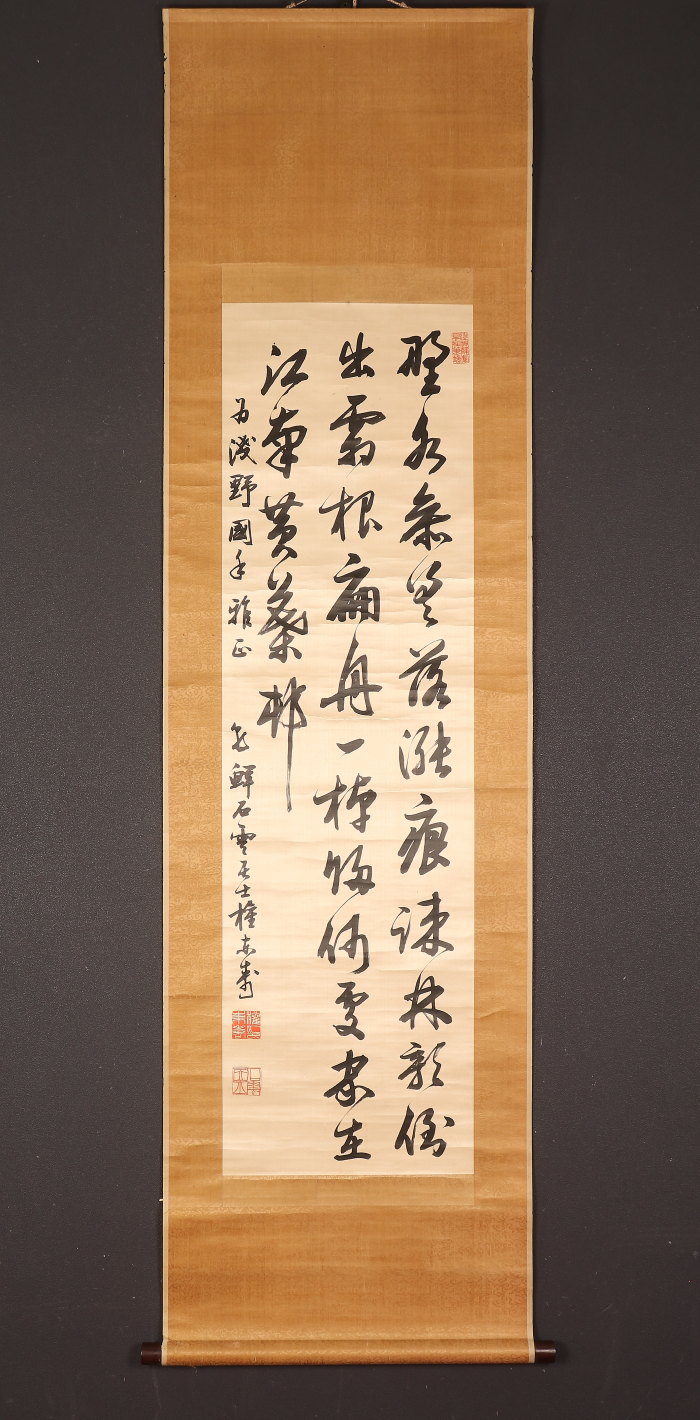 野水參差落漲痕疎林欹倒
出霜根扁舟一棹歸何處家在
江南黃葉邨
為淺野國手雅正 朝鮮石雲居士權東壽